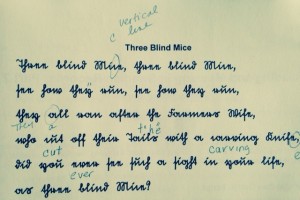 vertical
c line
Three Blind Mice
Three blind Mice, three blind Mice,
see how they run, see how they run,
they all ran after the Farmers Wife,
Then a the
who cut off their Tails with a carving Knife,
cut carving e
did you ever see such a sight in your life,
ever
as three blind Mice?